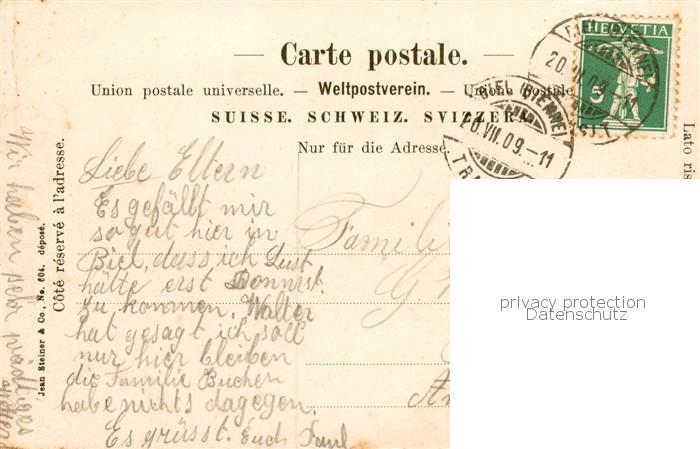 Carte postale.
Union postale universelle. — Weltpostverein. — Union postale
SUISSE. SCHWEIZ. SVIZZERA.
Nur für die Adresse.
HELVETIA
5
BIEL (BIENNE)
20.VII.09.-11
BIEL (BIENNE)
20.VII.09.-11
Lato ris
Côté réservé à l'adresse.
Jean Steiner & Co., No. 604. déposé.
Liebe Eltern
Es gefällt mir
so gut hier in
Biel, dass ich Lust
hätte erst Donnrst.
zu kommen. Walter
hat gesagt ich soll
nur hier bleiben
die Familie Bucher
habe nichts dagegen.
Es grüsst Euch Paul
Wir haben sehr
Famili
privacy protection
Datenschutz